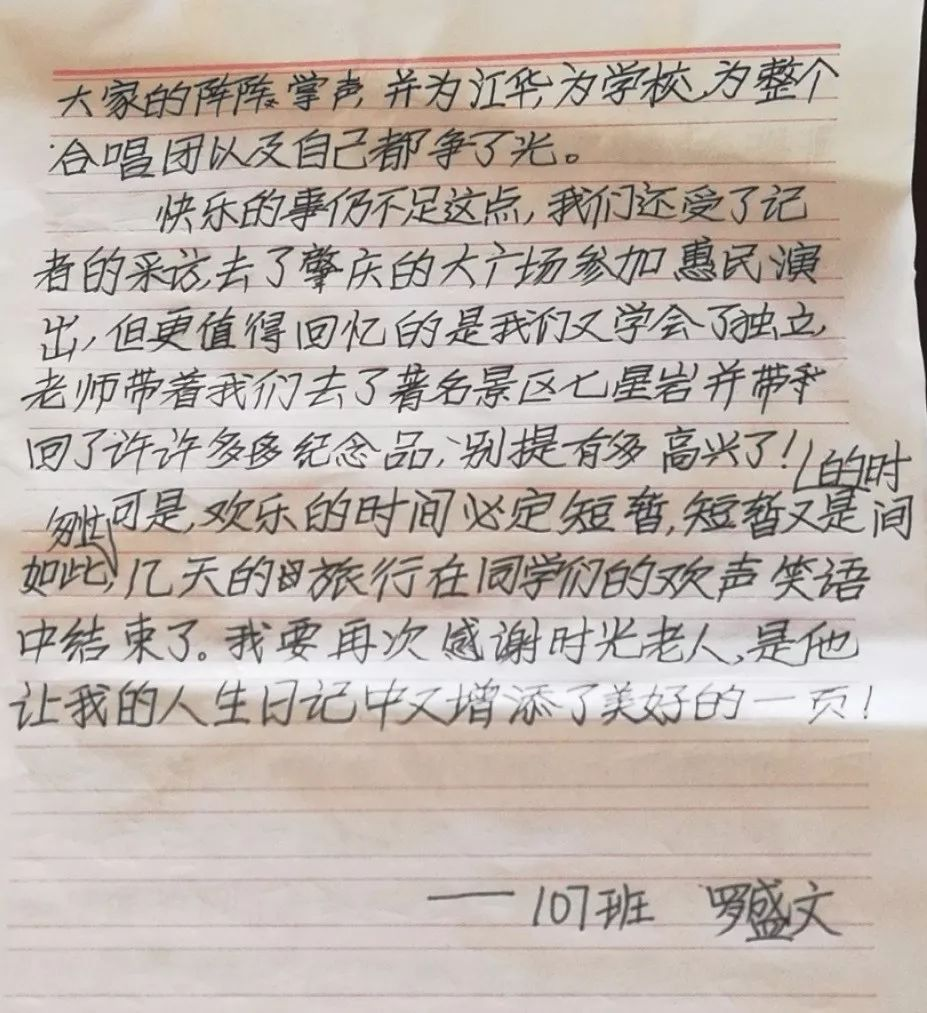 大家的阵阵掌声,并为江华,为学校,为整个
合唱团以及自己都争了光。
快乐的事仍不足这点,我们还受了记
者的采访,去了肇庆的大广场参加惠民演
出,但更值得回忆的是我们又学会了独立,
老师带着我们去了著名景区七星岩并带我
回了许许多多纪念品,别提有多高兴了!
可是,欢乐的时间必定短暂,短暂又是
的时间
如此,几天的旅行在同学们的欢声笑语
中结束了。我要再次感谢时光老人,是他
让我的人生日记中又增添了美好的一页!
——107班 罗盛文